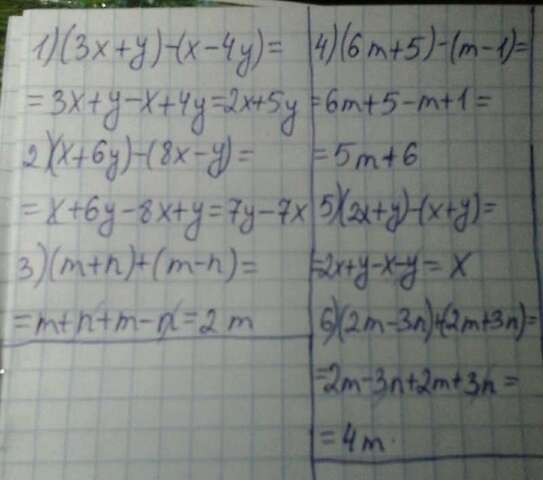 1)(3x+y)-(x-4y)=
=3x+y-x+4y=2x+5y
2)(x+6y)-(8x-y)=
=x+6y-8x+y=7y-7x
3)(m+n)+(m-n)=
=m+n+m-n=2m
4)(6m+5)-(m-1)=
=6m+5-m+1=
=5m+6
5)(2x+y)-(x+y)=
=2x+y-x-y=x
6)(2m-3n)+(2m+3n)=
=2m-3n+2m+3n=
=4m.